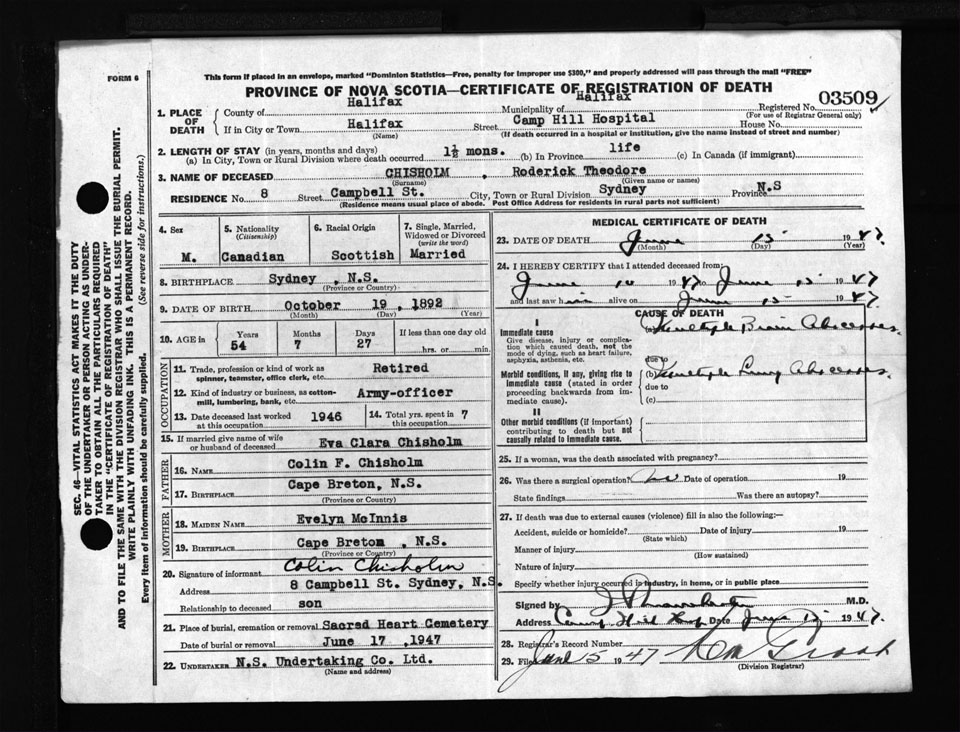 FORM 6
This form if placed in an envelope, marked "Dominion Statistics—Free, penalty for improper use $300," and properly addressed will pass through the mail "FREE"
PROVINCE OF NOVA SCOTIA—CERTIFICATE OF REGISTRATION OF DEATH
1. PLACE OF DEATH County of Halifax Municipality of Halifax Registered No. 03509
(For use of Registrar General only)
If in City or Town Halifax Street Camp Hill Hospital House No.
(Name) (If death occurred in a hospital or institution, give the name instead of street and number)
2. LENGTH OF STAY (in years, months and days)
(a) In City, Town or Rural Division where death occurred 1½ mons. (b) In Province life (c) In Canada (if immigrant)
3. NAME OF DECEASED CHISHOLM , Roderick Theodore
(Surname) (Given name or names)
RESIDENCE No. 8 Street Campbell St. City, Town or Rural Division Sydney Province N.S
(Residence means usual place of abode. Post Office Address for residents in rural parts not sufficient)
4. Sex 5. Nationality (Citizenship) 6. Racial Origin 7. Single, Married, Widowed or Divorced (write the word)
M. Canadian Scottish Married
8. BIRTHPLACE Sydney , N.S.
(Province or Country)
9. DATE OF BIRTH October 19 , 1892
(Month) (Day) (Year)
10. AGE in Years Months Days If less than one day old
54 7 27 hrs. or min.
OCCUPATION
11. Trade, profession or kind of work as spinner, teamster, office clerk, etc. Retired
12. Kind of industry or business, as cotton-mill, lumbering, bank, etc. Army-officer
13. Date deceased last worked at this occupation 1946 14. Total yrs. spent in this occupation 7
15. If married give name of wife or husband of deceased Eva Clara Chisholm
FATHER
16. NAME Colin F. Chisholm
17. BIRTHPLACE Cape Breton, N.S.
(Province or Country)
MOTHER
18. MAIDEN NAME Evelyn McInnis
19. BIRTHPLACE Cape Breton , N.S.
(Province or Country)
20. Signature of informant Colin Chisholm
Address 8 Campbell St. Sydney, N.S.
Relationship to deceased son
21. Place of burial, cremation or removal Sacred Heart Cemetery
Date of burial or removal June 17, 1947
22. UNDERTAKER N.S. Undertaking Co. Ltd.
(Name and address)
MEDICAL CERTIFICATE OF DEATH
23. DATE OF DEATH June 15 1947.
(Month) (Day) (Year)
24. I HEREBY CERTIFY that I attended deceased from
June 10 1947 to June 15 1947
and last saw him alive on June 15 1947.
CAUSE OF DEATH
I
Immediate cause (a) Multiple Brain Abscesses.
Give disease, injury or complication which caused death, not the mode of dying, such as heart failure, asphyxia, asthenia, etc.
due to
Morbid conditions, if any, giving rise to immediate cause (stated in order proceeding backwards from immediate cause). (b) Multiple Lung Abscesses.
due to
(c)
II
Other morbid conditions (if important) contributing to death but not causally related to immediate cause
25. If a woman, was the death associated with pregnancy?
26. Was there a surgical operation? No Date of operation 19
State findings Was there an autopsy?
27. If death was due to external causes (violence) fill in also the following:—
Accident, suicide or homicide? Date of injury 19
(State which)
Manner of injury
(How sustained)
Nature of injury
Specify whether injury occurred in industry, in home, or in public place
Signed by M.D.
Address Camp Hill Hosp Date June 1947.
28. Registrar's Record Number
29. Filed June 15 1947
(Division Registrar)
SEC. 46—VITAL STATISTICS ACT MAKES IT THE DUTY
OF THE UNDERTAKER OR PERSON ACTING AS UNDERTAKER TO OBTAIN ALL THE PARTICULARS REQUIRED
IN THE "CERTIFICATE OF REGISTRATION OF DEATH"
AND TO FILE THE SAME WITH THE DIVISION REGISTRAR WHO SHALL ISSUE THE BURIAL PERMIT.
WRITE PLAINLY WITH UNFADING INK. THIS IS A PERMANENT RECORD.
Every item of information should be carefully supplied. (See reverse side for instructions.)